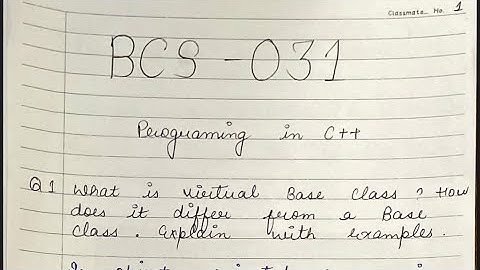 Classmate No. 1
BCS-031
Perograming in C++
Q1 What is virtual Base Class ? How
does it differ from a Base
Class. Explain with examples.